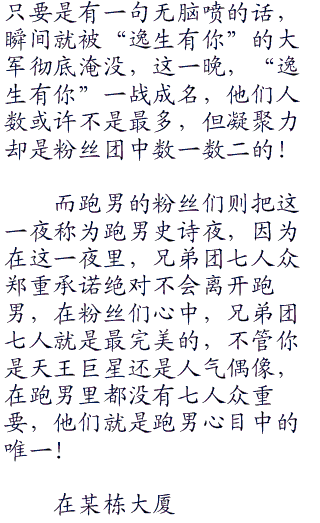 只要是有一句无脑喷的话，
瞬间就被“逸生有你”的大
军彻底淹没，这一晚，“逸
生有你”一战成名，他们人
数或许不是最多，但凝聚力
却是粉丝团中数一数二的！
而跑男的粉丝们则把这
一夜称为跑男史诗夜，因为
在这一夜里，兄弟团七人众
郑重承诺绝对不会离开跑
男，在粉丝们心中，兄弟团
七人就是最完美的，不管你
是天王巨星还是人气偶像，
在跑男里都没有七人众重
要，他们就是跑男心目中的
唯一！
在某栋大厦